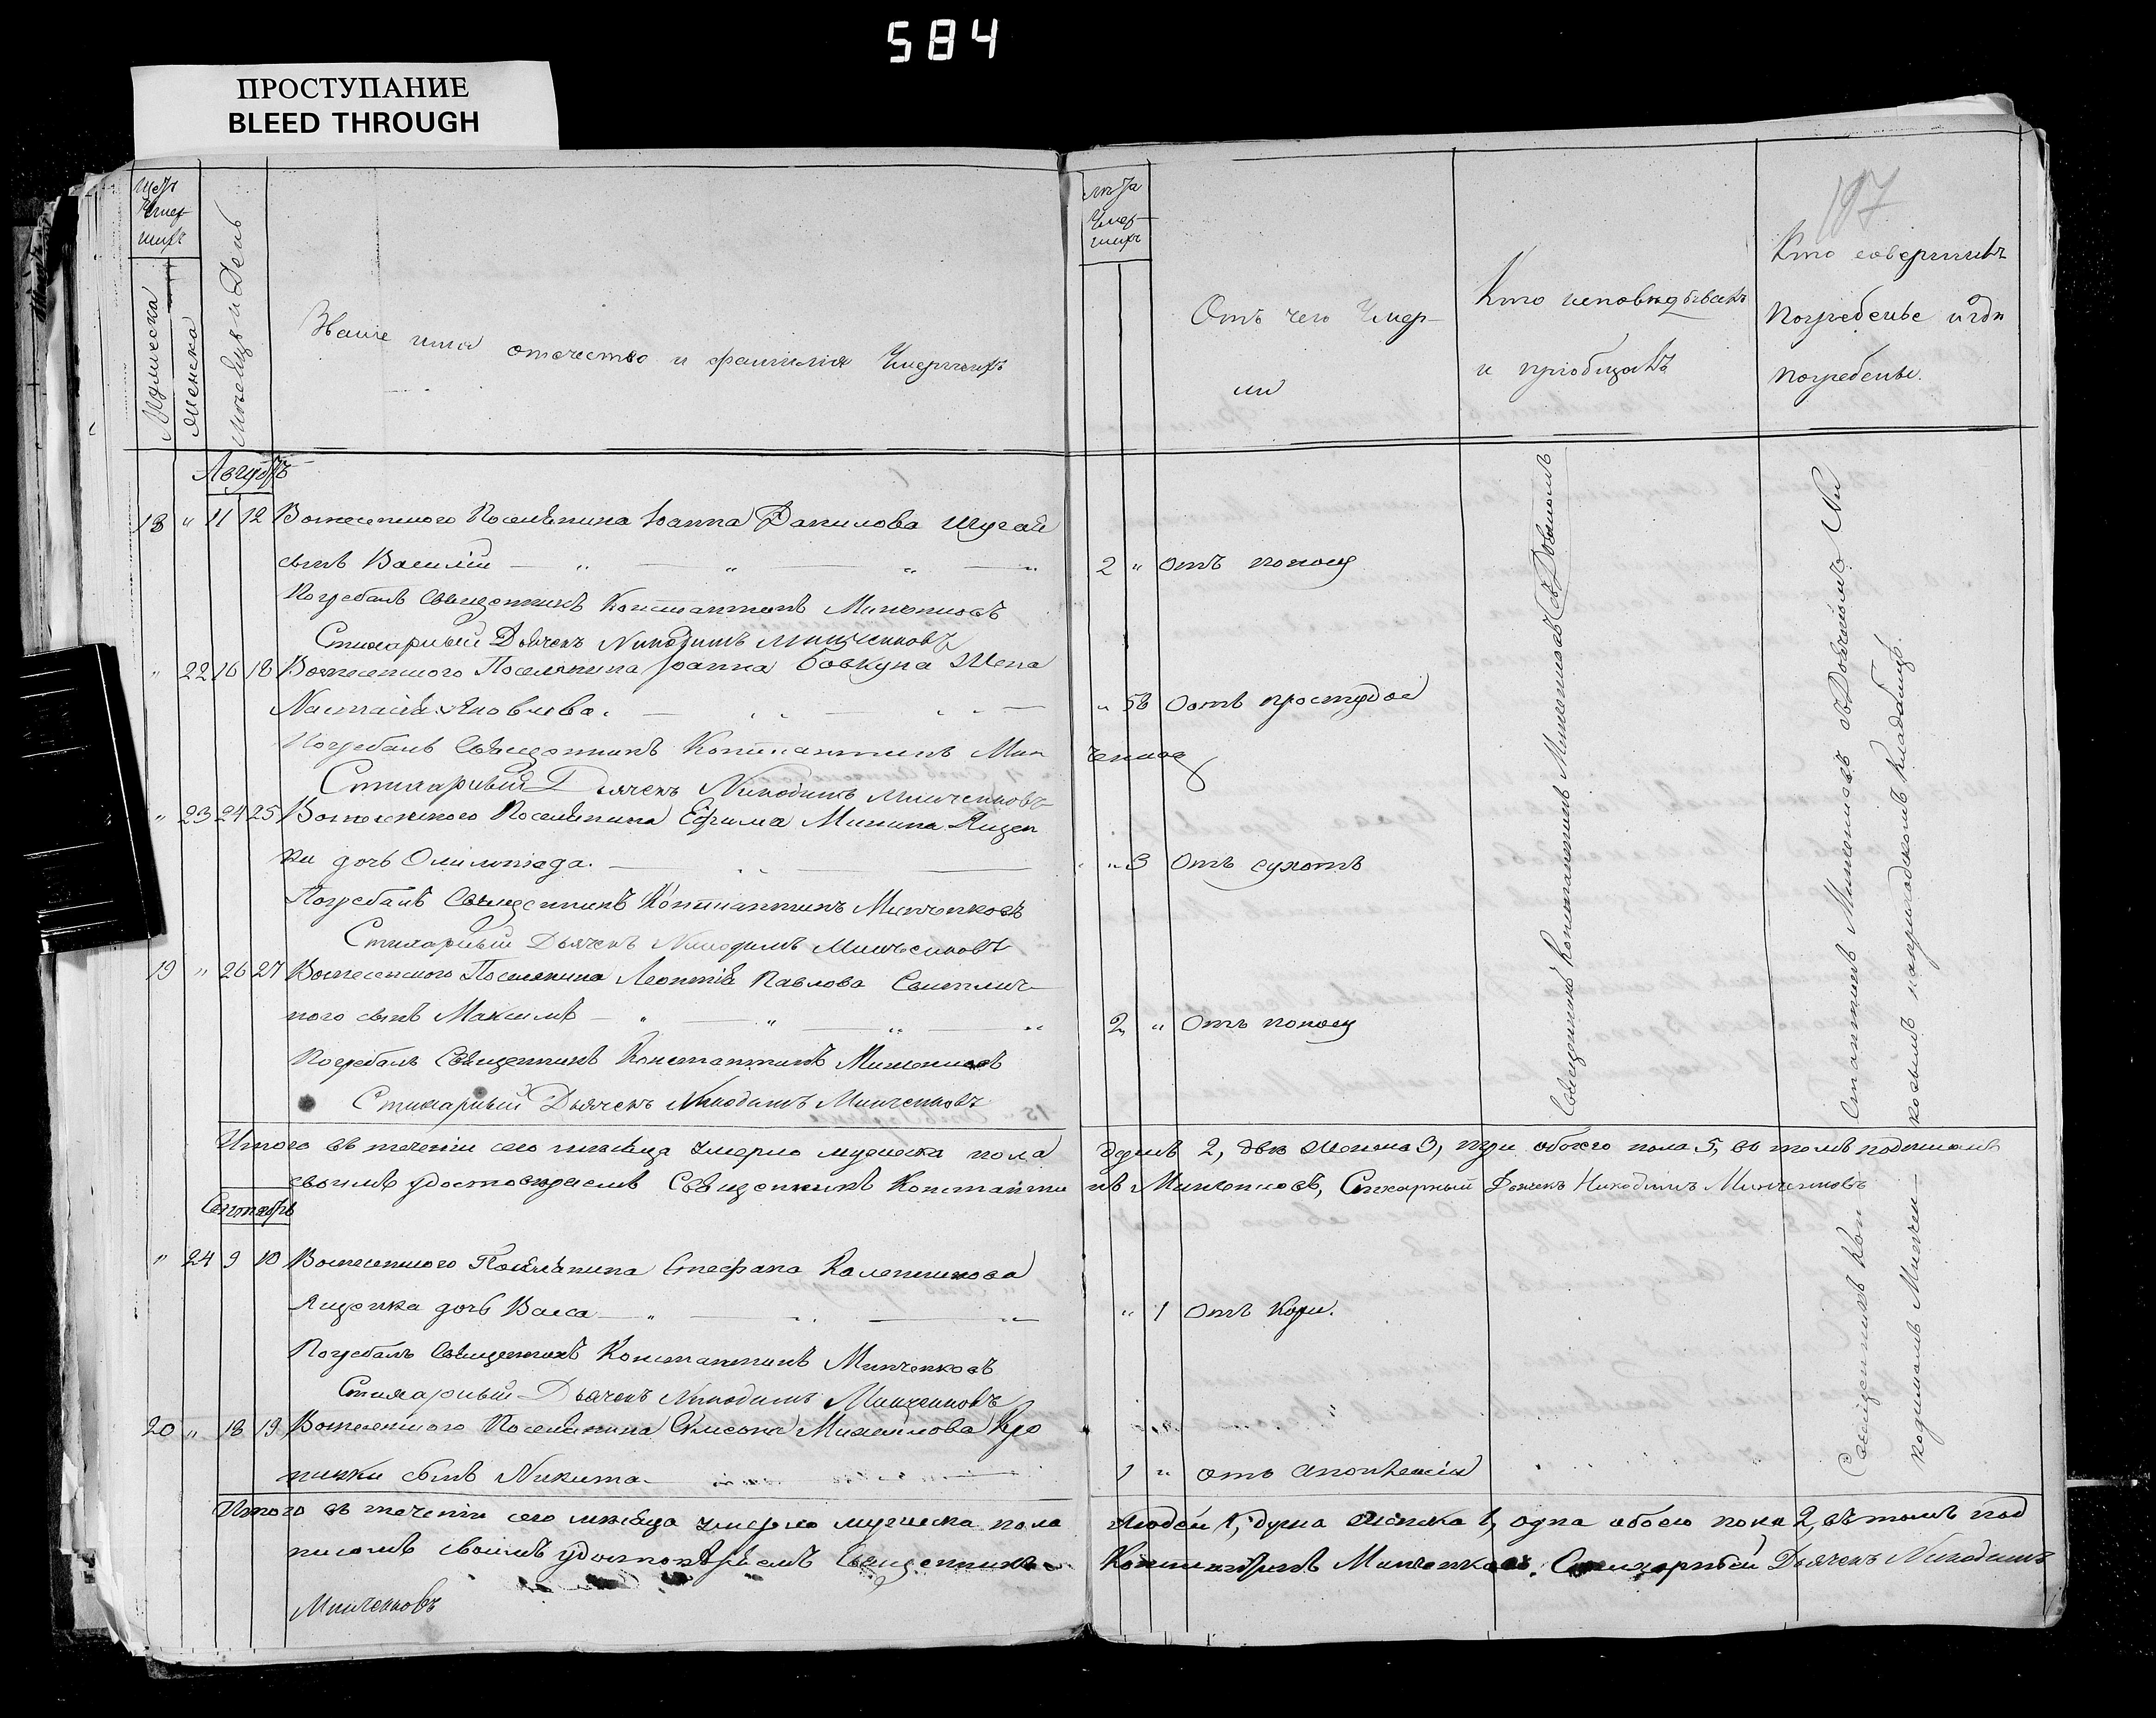 584
ПРОСТУПАНИЕ
BLEED THROUGH
197
Счетъ Умер-шихъ
Мужеска
Женска
Мѣсяцъ и День
Званіе имя отечество и фамилия Умершихъ
лѣта Умер-шихъ
Отъ чего Умер-ли
Кто исповѣдывалъ и пріобщалъ
Кто совершилъ погребеніе и гдѣ погребены.
Августъ
18 " 11 12 Вознесенского Поселянина Іоанна Данилова Шугай
сынъ Василій 2 " отъ поносу
Погребалъ Священникъ Константинъ Минченковъ
Стихарный Дьячекъ Никодимъ Минченковъ
" 22 16 18 Вознесенского Поселянина Іоанна Бовкуна Жена
Настасія Яковлева. " 56 отъ простуды
Погребалъ Священникъ Константинъ Мин ченковъ
Стихарный Дьячекъ Никодимъ Минченковъ
" 23 24 25 Вознесенского Поселянина Ефима Минина Ящен
ки дочь Олимпіада. " 3 отъ сухотъ
Погребалъ Священникъ Константинъ Минченковъ
Стихарный Дьячекъ Никодимъ Минченковъ
19 " 26 27 Вознесенского Поселянина Леонтія Павлова Свѣтлич-
ного сынъ Максимъ 2 " отъ поносу
Погребалъ Священникъ Константинъ Минченковъ
Стихарный Дьячекъ Никодимъ Минченковъ
Священникъ Константинъ Минченковъ
Минченковъ
на приходскомъ кладбищѣ.
Итого въ теченіи сего мѣсяца умерло мужеска пола 2, двѣ женска 3, три обоего пола 5, въ томъ подписомъ
своимъ удостовѣряемъ Священникъ Константи нъ Минченковъ, Стихарный Дьячекъ Никодимъ Минченковъ
Сентябрь
" 24 9 10 Вознесенского Поселянина Стефана Каленикова
Ященка дочь Васса " 1 отъ Кори.
Погребалъ Священникъ Константинъ Минченковъ
Стихарный Дьячекъ Никодимъ Минченковъ
20 " 18 19 Вознесенского Поселянина Михайлова
сынъ Никита 1 " отъ
Священникъ Кон
Итого въ теченіи сего мѣсяца умерло мужеска пола 1, женска 1, одна обоего пола 2, въ томъ под
писомъ своимъ удостовѣряемъ Священникъ Константинъ Минченковъ. Стихарный Дьячекъ Никодимъ
Минченковъ